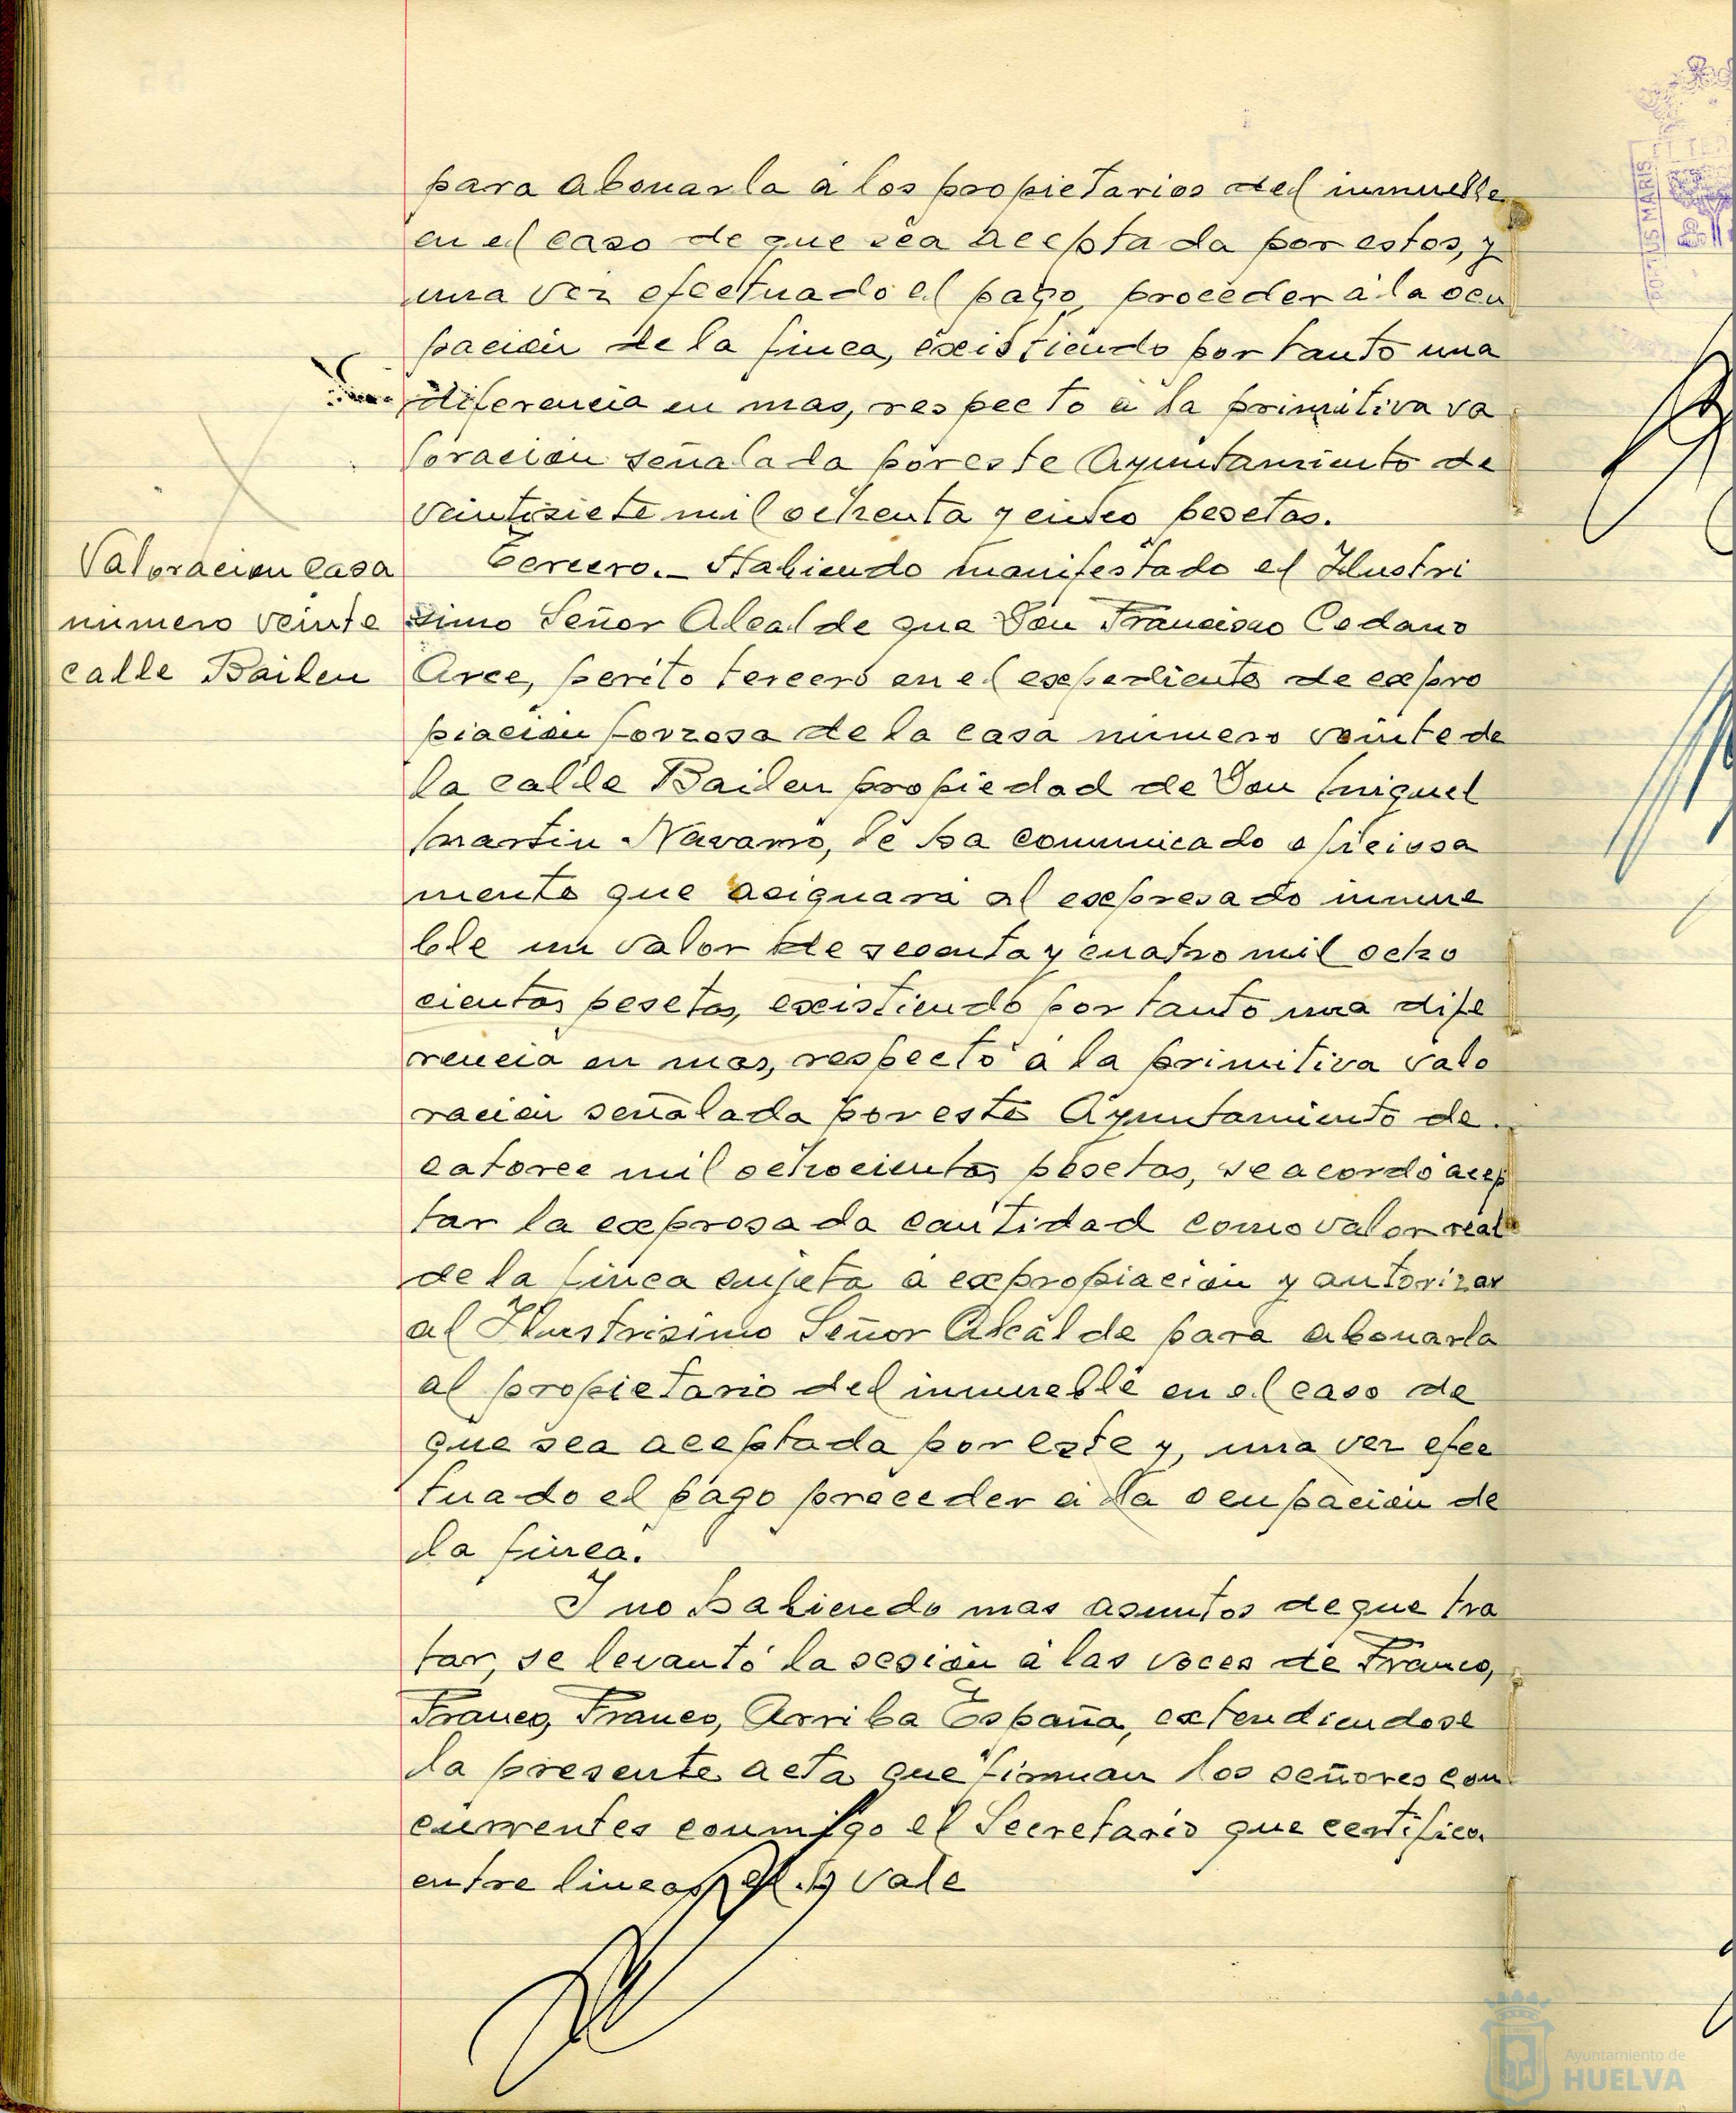 para abonarla á los propietarios del inmueble
en el caso de que sea aceptada por estos, y
una vez efectuado el pago, proceder á la ocu
pación de la finca, existiendo por tanto una
diferencia en mas, respecto á la primitiva va
loracion señalada por este Ayuntamiento de
veintisiete mil ochenta y cinco pesetas.
Valoracion casa
numero veinte
calle Bailen
Tercero._ Habiendo manifestado el Ilustri
simo Señor Alcalde que Don Francisco Cedano
Arce, perito tercero en el expediente de expro
piacion forzosa de la casa numero veinte de
la calle Bailen propiedad de Don Miguel
Martin Navarro, le ha comunicado oficiosa
mente que asignara al expresado inmue
ble un valor de sesenta y cuatro mil ocho
cientas pesetas, existiendo por tanto una dife
rencia en mas, respecto á la primitiva valo
racion señalada por este Ayuntamiento de
catorce mil ochocientas pesetas, se acordó acep
tar la expresada cantidad como valor real
de la finca sujeta á expropiacion y autorizar
al Ilustrisimo Señor Alcalde para abonarla
al propietario del inmueble en el caso de
que sea aceptada por este y, una vez efec
tuado el pago proceder á la ocupación de
la finca.
Y no habiendo mas asuntos de que tra
tar, se levantó la sesión á las voces de Franco,
Franco, Franco, Arriba España, extendiendose
la presente acta que firman los señores con
currentes conmigo el Secretario que certifico.
entre lineas vale
PORTUS MARIS
Ayuntamiento de
HUELVA